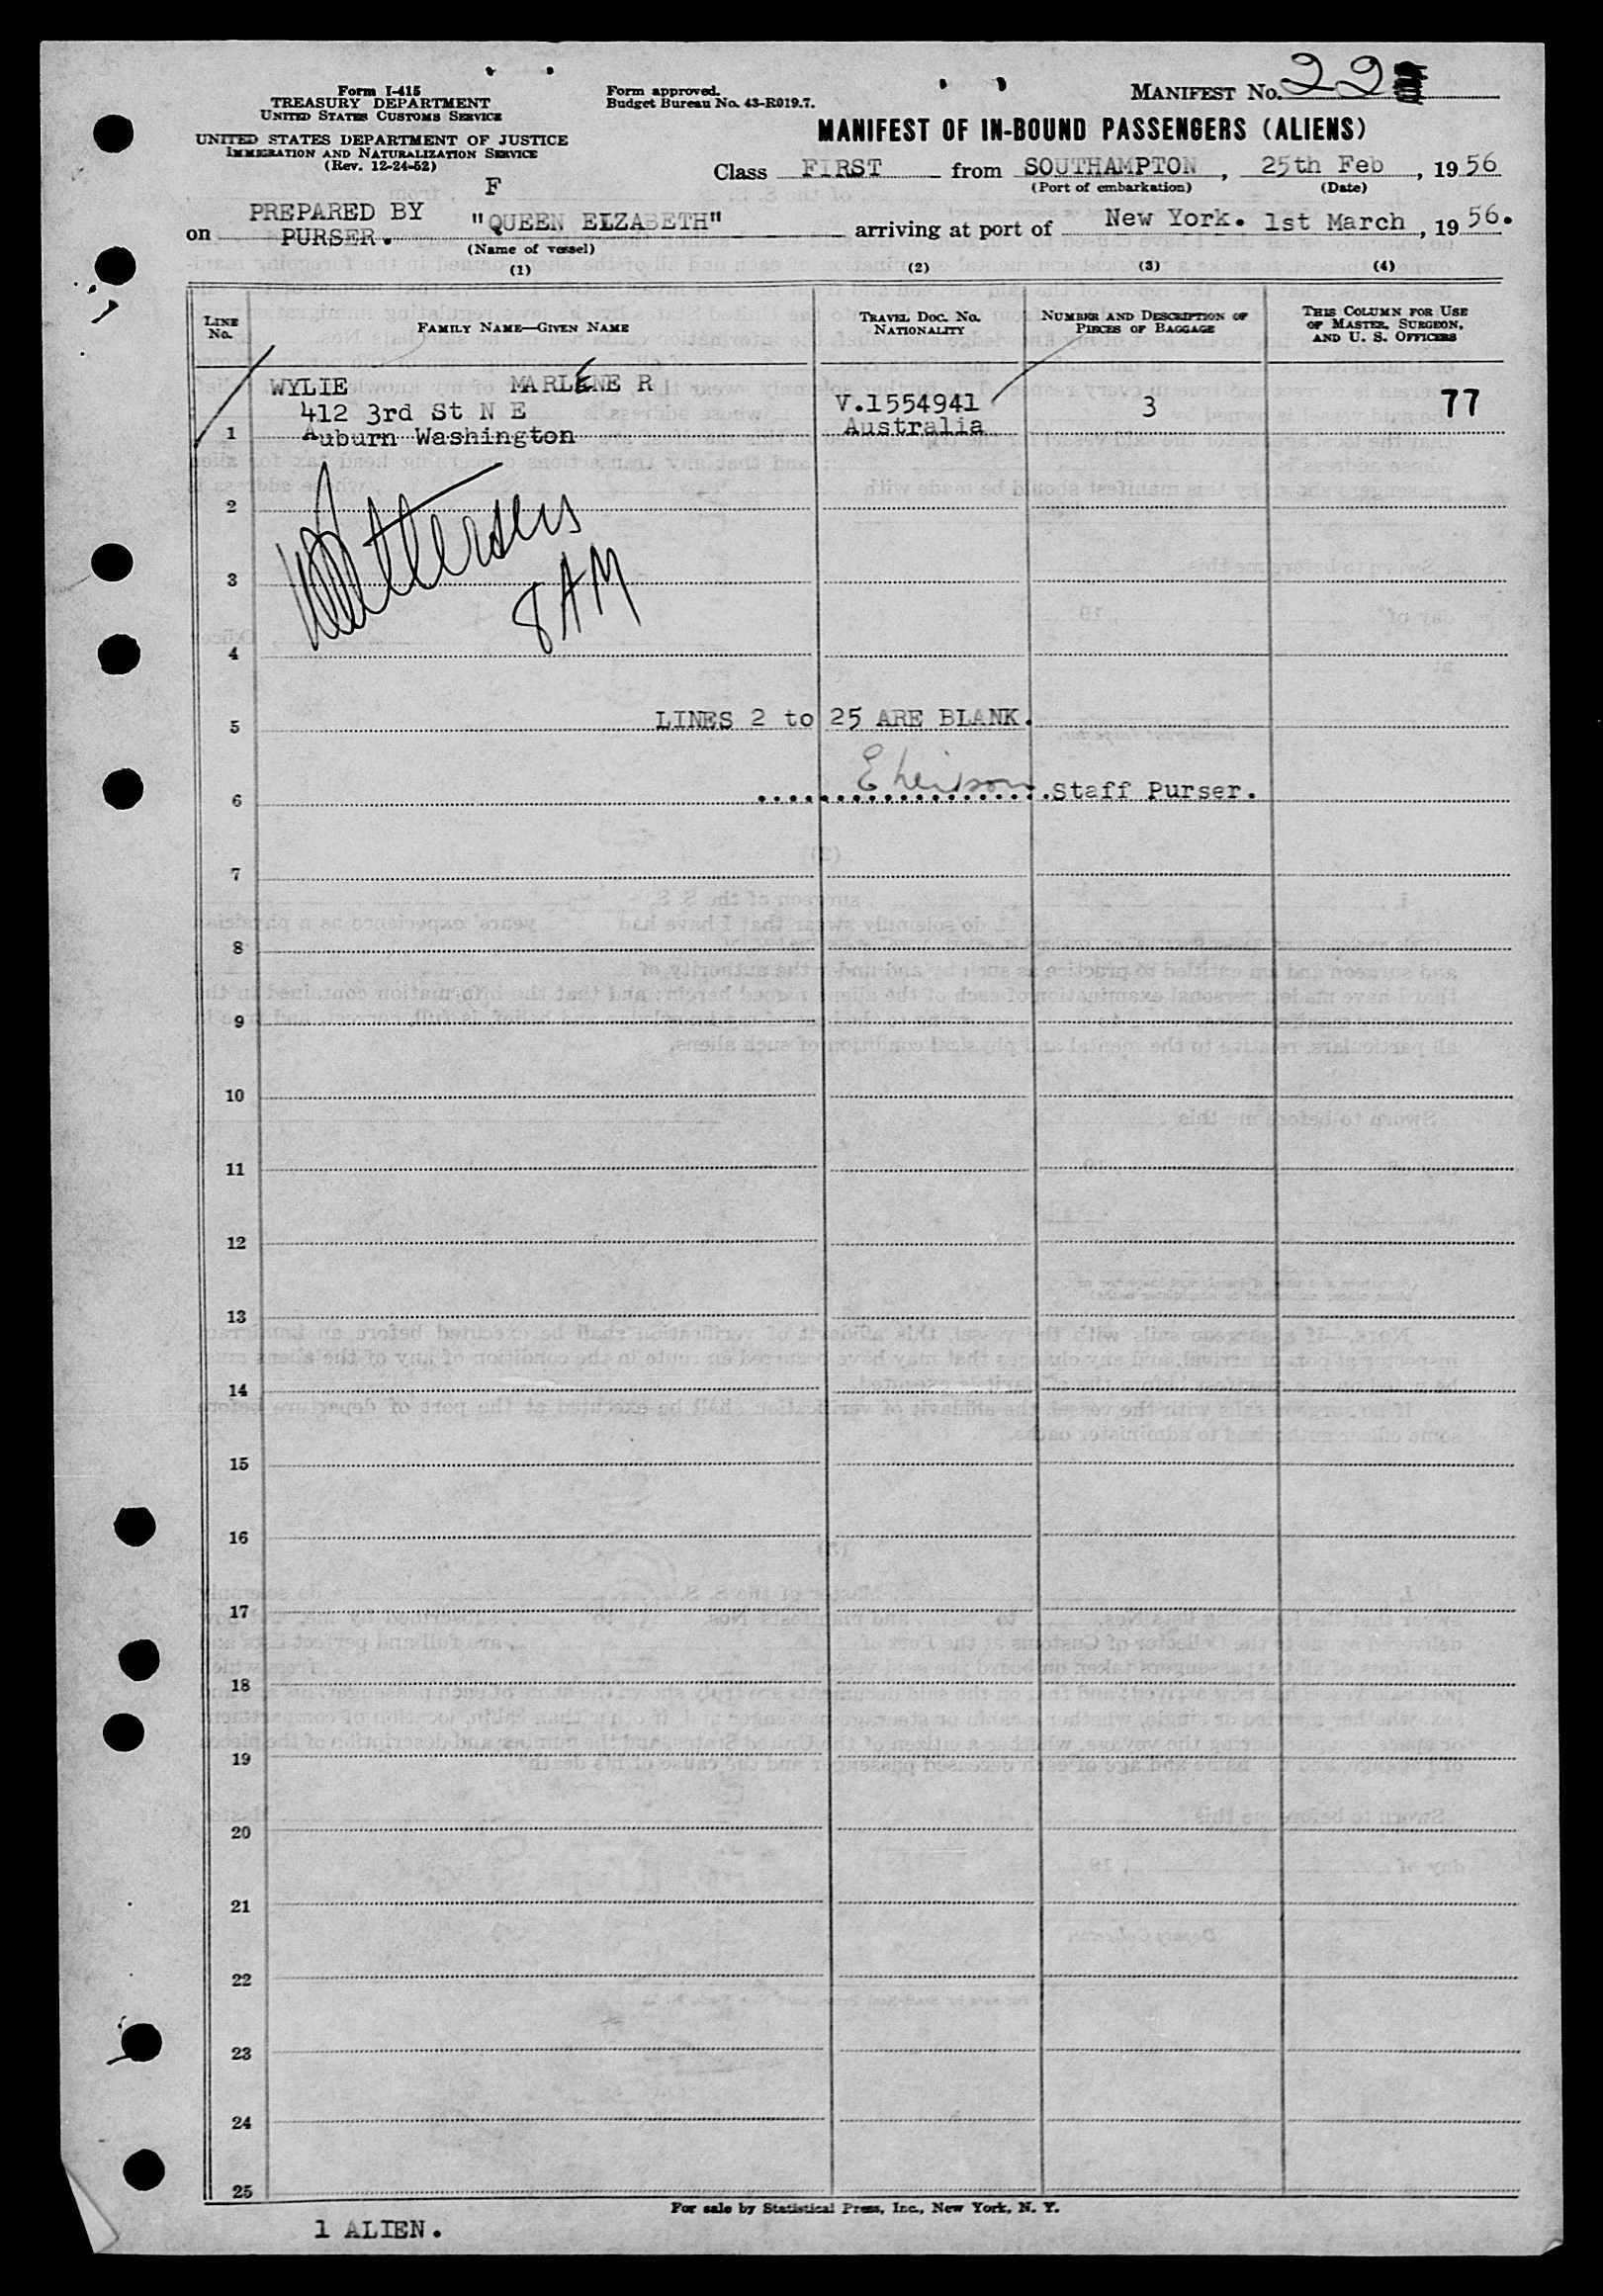 Form I-415
TREASURY DEPARTMENT
UNITED STATES CUSTOMS SERVICE
UNITED STATES DEPARTMENT OF JUSTICE
IMMIGRATION AND NATURALIZATION SERVICE
(Rev. 12-24-52)
Form approved.
Budget Bureau No. 43-R019.7.
MANIFEST No. 22
MANIFEST OF IN-BOUND PASSENGERS (ALIENS)
Class FIRST from SOUTHAMPTON, 25th Feb, 19 56
(Port of embarkation) (Date)
F
PREPARED BY
on PURSER. "QUEEN ELZABETH" arriving at port of New York. 1st March, 19 56.
(Name of vessel)
(1) (2) (3) (4)
LINE No. FAMILY NAME—GIVEN NAME TRAVEL DOC. No. NATIONALITY NUMBER AND DESCRIPTION OF PIECES OF BAGGAGE THIS COLUMN FOR USE OF MASTER, SURGEON, AND U. S. OFFICERS
WYLIE MARLENE R
412 3rd St N E V.1554941 3 77
1 Auburn Washington Australia
2
3
8 AM
4
5 LINES 2 to 25 ARE BLANK.
6 Staff Purser.
7
8
9
10
11
12
13
14
15
16
17
18
19
20
21
22
23
24
25
For sale by Statistical Press, Inc., New York, N. Y.
1 ALIEN.